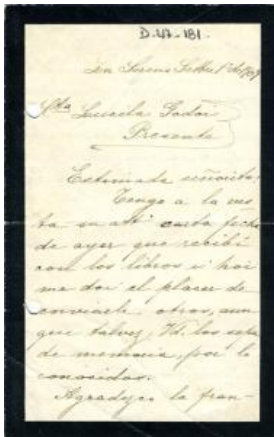 D-47-181.
La Serena Setbre 1º de 1909
Sta Lucila Godoi
Presente
Estimada señorita:
Tengo a la vis-
ta su att carta fecha
de ayer que recibí
con los libros i hoi
me doi el placer de
enviarle otros, aun
que talvez, Vd. los sepa
de memoria, por lo
conocidos.
Agradezco la fran-